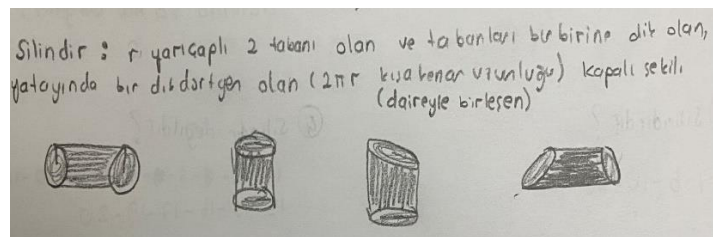 Silindir : r yarıçaplı 2 tabanı olan ve tabanları birbirine dik olan,
yatayında bir dikdörtgen olan (2πr kısa kenar uzunluğu) kapalı şekil.
(daireyle birleşen)